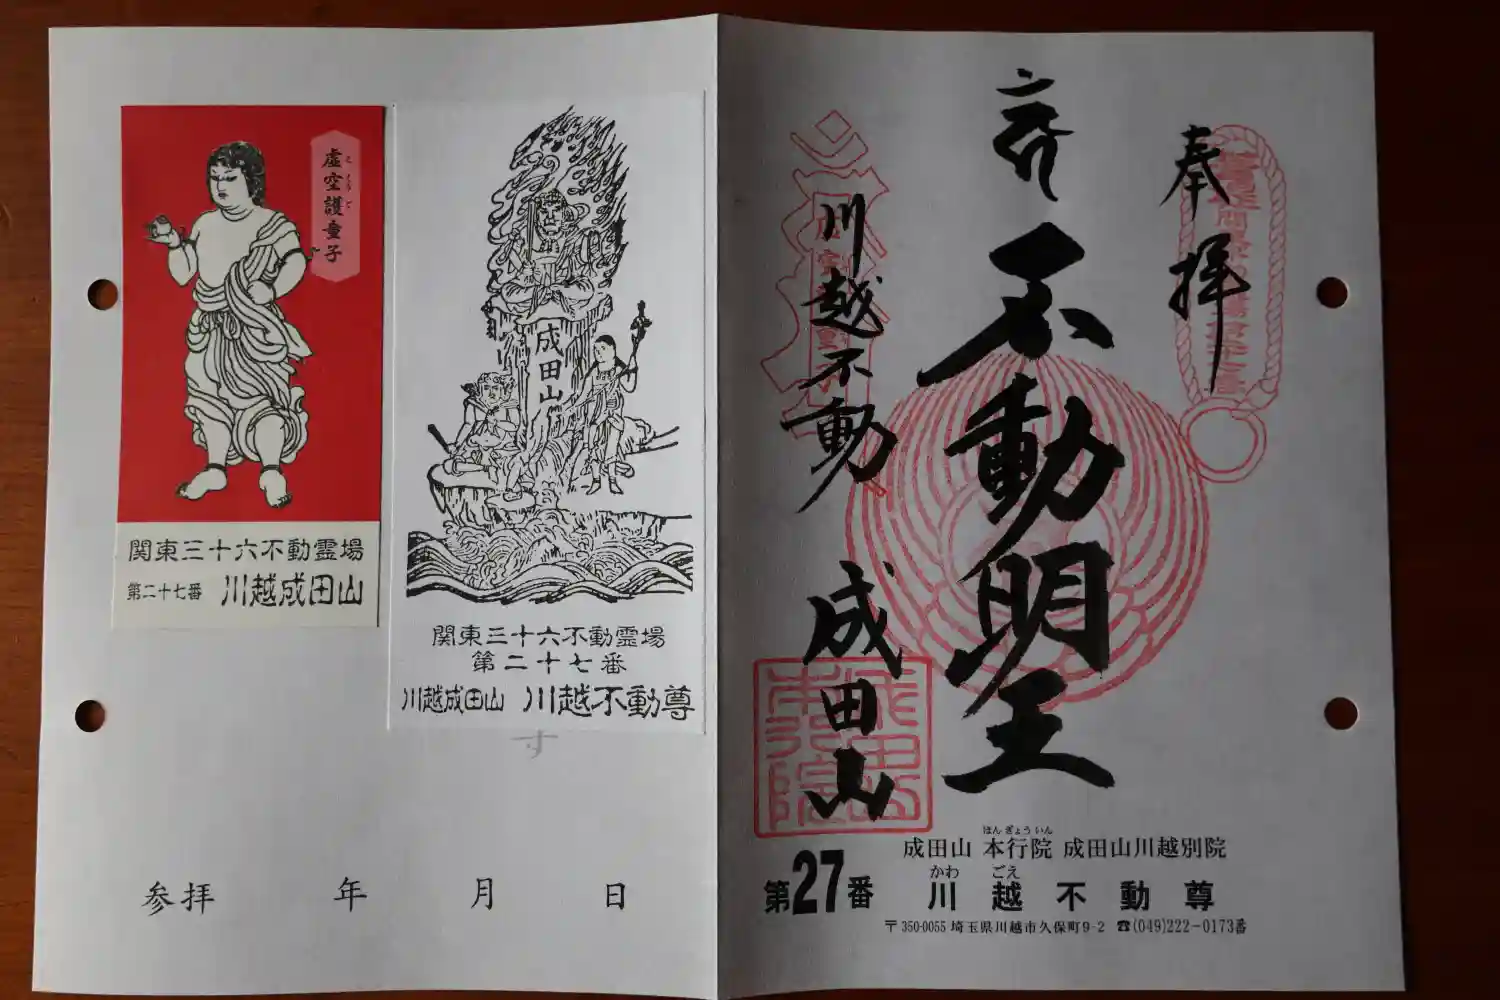 虚空護童子
こくうごどうじ
関東三十六不動霊場
第二十七番 川越成田山
成田山
関東三十六不動霊場
第二十七番
川越成田山 川越不動尊
す
参拝 年 月 日
奉拝
不動明王
川越不動
成田山
成田山
本行院
ほんぎょういん
成田山 本行院 成田山川越別院
かわ ごえ
第27番 川越不動尊
〒350-0055 埼玉県川越市久保町9-2 ☎(049)222-0173番